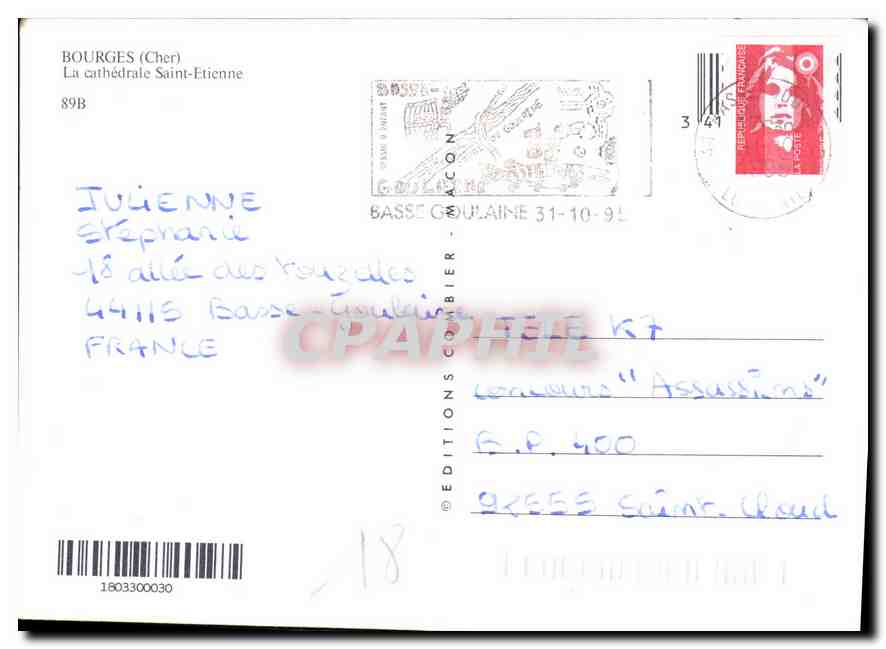 BOURGES (Cher)
La cathédrale Saint-Etienne
89B
GOULAINE
BASSE GOULAINE 31-10-95
3 41
REPUBLIQUE FRANÇAISE
LA POSTE
JULIENNE
Stéphanie
18 allée des
44115 Basse-Goulaine
FRANCE
CPAPHIL
© EDITIONS COMBIER - MACON
TELE K7
concours "Assassins"
B.P. 400
92555 Saint-Cloud
1803300030
18